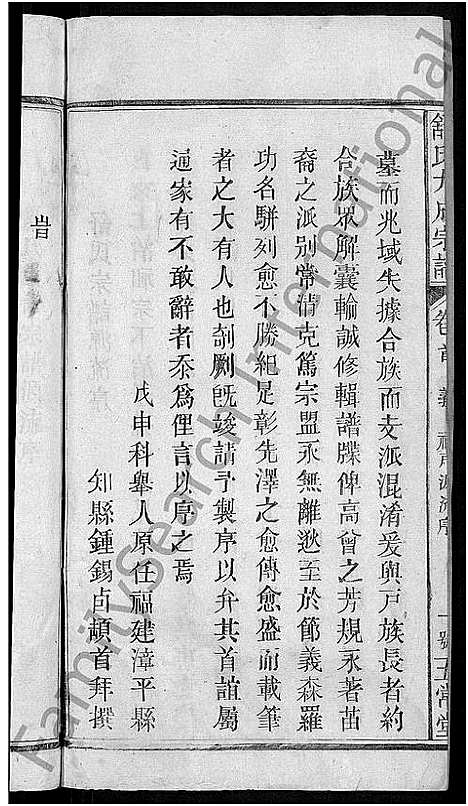 舒氏九成宗譜 卷首
墓而兆域失據合族而支派混淆爰與戶族長者約
合族眾解囊輪誠修輯譜牒俾高曾之芳規永著苗
裔之派別常清克篤宗盟永無離逖至於節義森羅
功名駢列愈不勝紀是彰先澤之愈傳愈盛而載筆
者之大有人也剞劂既竣請予製序以弁其首誼屬
通家有不敢辭者忝為俚言以序之焉
戊申科舉人原任福建漳平縣
知縣鍾錫卣頓首拜撰
FamilySearch International